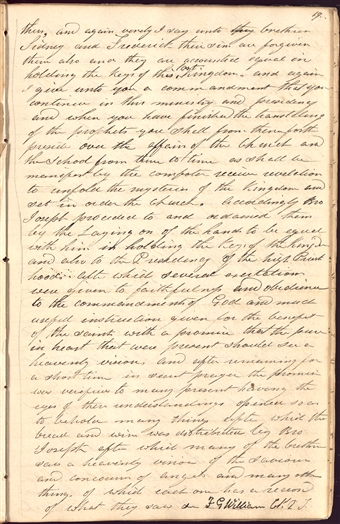 17
thee, and again verily I say unto thy brethren
Sidney and Frederick their sins are forgiven
them also and they are accounted equal in
holding the keys of this last Kingdom, and again
I give unto you a commandment that you
continue in this ministry and presidency
and when you have finished the translating
of the prophets you shall from thenceforth
preside over the affairs of the Church and
the School from time to time as shall be
manifest by the comforter receive revelation
to unfold the mysteries of the Kingdom and
set in order the Church. Accordingly Bro
Joseph proceded to and ordained them
by the laying on of the hands to be equal
with him in holding the Keys of the Kingdom
and also to the Presidency of the high Priest
hood. After which several exortations
were given to faithfulness and obedience
to the commandments of God and much
useful instruction given for the benefit
of the saints with a promise that the pure
in heart that were present should see a
heavenly vision and after remaining for
a short time in secret prayer the promise
was verified to many present having the
eyes of their understandings opened so as
to behold many things after which the
bread and wine was distributed by Bro
Joseph after which many of the brethren
saw a heavenly vision of the saviour
and concourses of angels and many other
things of which each one has a record
of what they saw &c F. G. Williams